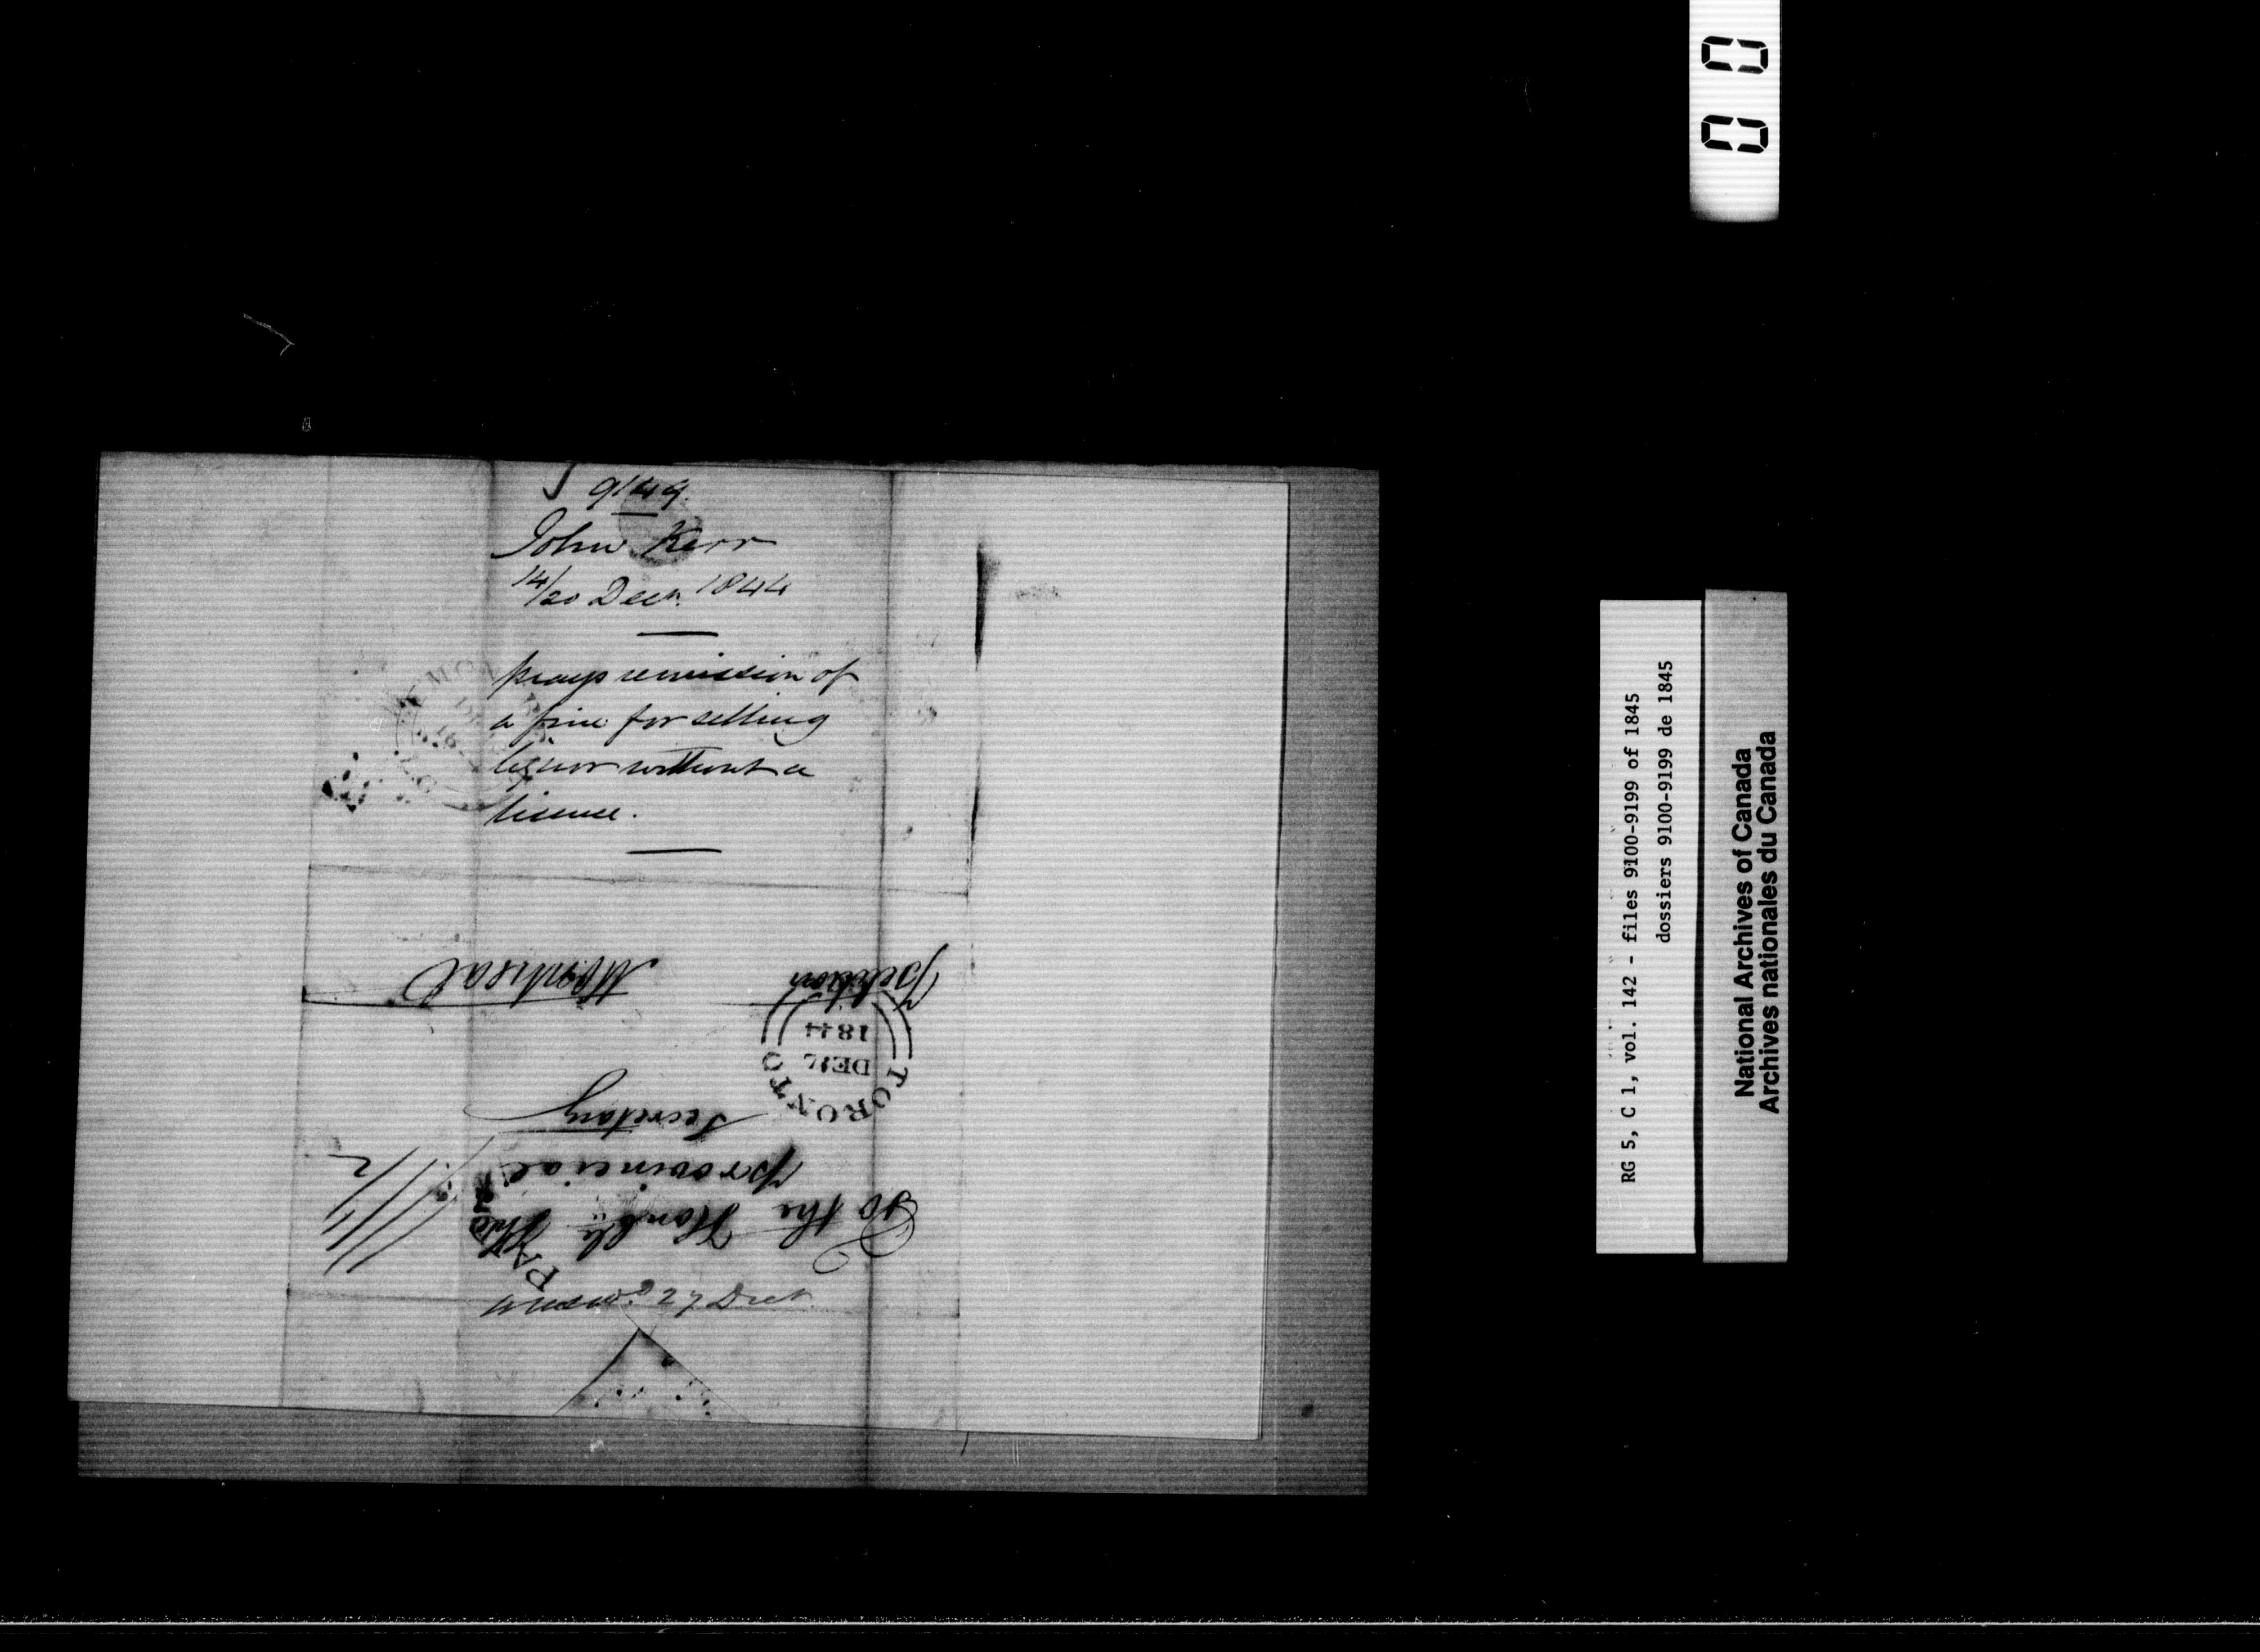 9149.
John Kerr
14/20 Decr. 1844
prays remission of
a fine for selling
liquor without a
license.
To the Honble the
Provincial
Secretary
Montreal
Petition
TORONTO
DE
1844
PAID
Answd. 27 Decr.
RG 5, C 1, vol. 142 - files 9100-9199 of 1845
dossiers 9100-9199 de 1845
National Archives of Canada
Archives nationales du Canada
00